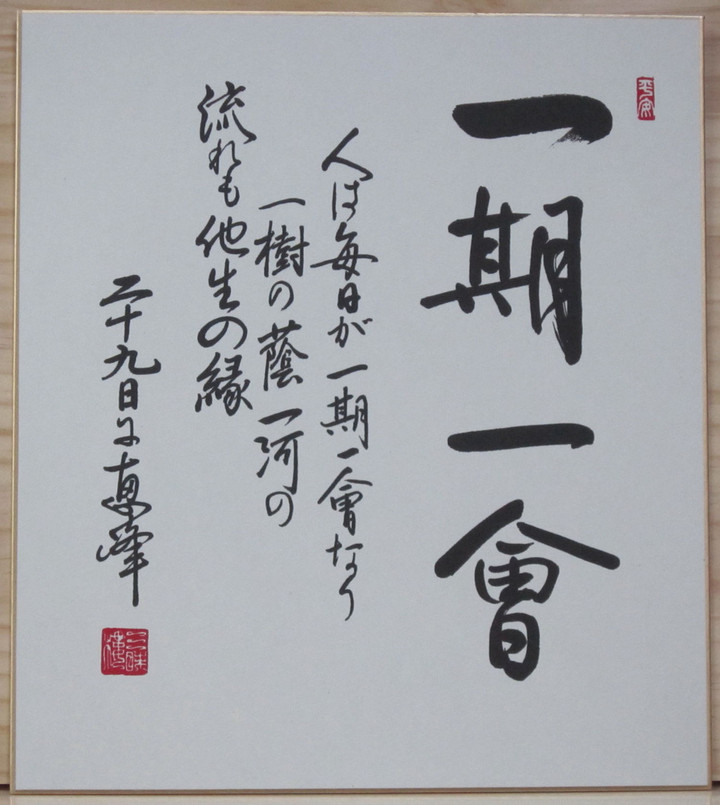 平安
一期一會
人は毎日が一期一會なり
一樹の蔭一河の
流れも他生の縁
二十九日に恵峰